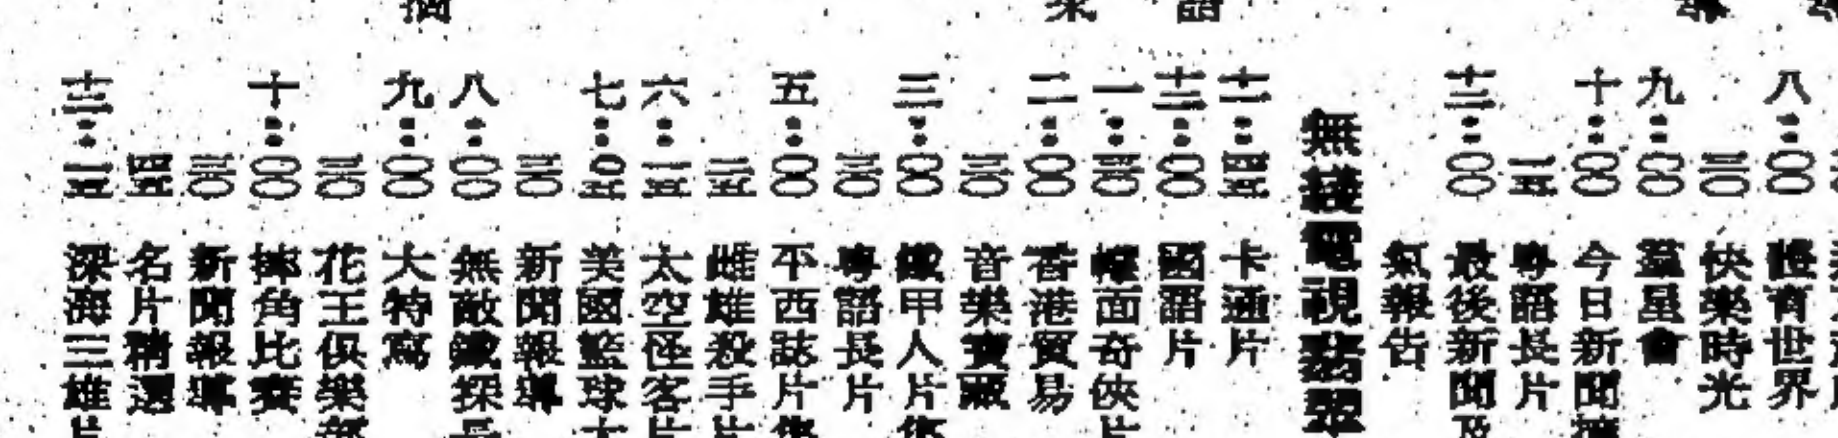 八：〇〇 體育世界
三〇 快樂時光
九：〇〇 羣星會
十：〇〇 今日新聞
一五 粵語長片
十二：〇〇 最後新聞及
氣報告
無綫電視翡翠
十一：四五 卡通片
十二：〇〇 國語片
一：三〇 幪面奇俠片
二：〇〇 香港貿易
三〇 音樂寶藏
三：〇〇 鐵甲人片集
三〇 粵語長片
五：〇〇 不西誌片集
三五 雌雄殺手片
六：一五 太空怪客片
七：〇五 美國籃球大
三〇 新聞報導
八：〇〇 無敵鐵探長
九：〇〇 大特寫
三〇 花王俱樂部
十：〇〇 摔角比賽
三〇 新聞報導
四五 名片精選
十二：一五 深海三雄片